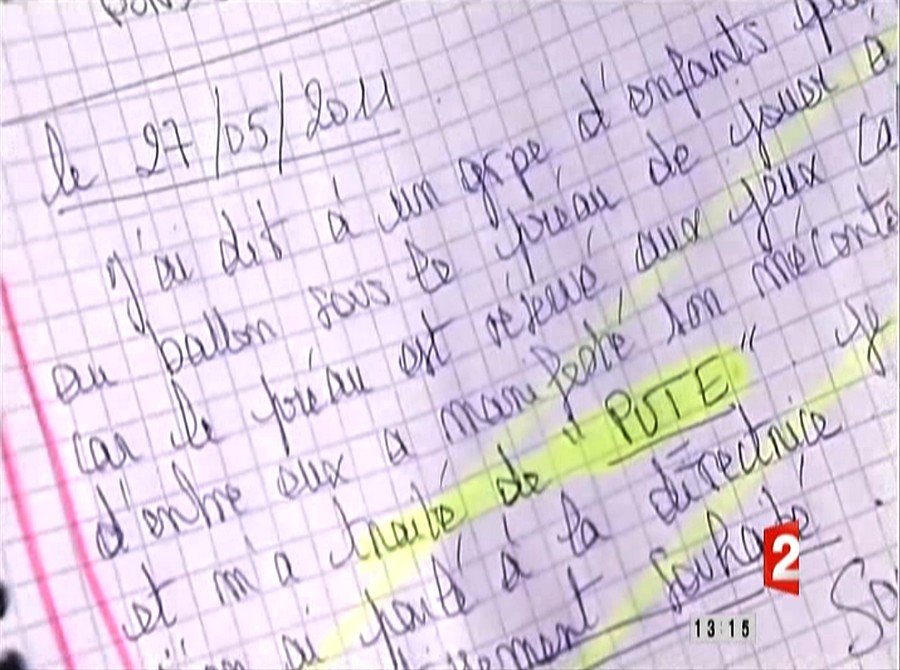 le 27/05/2011
j'ai dit à un grpe d'enfants
au ballon sous le préau de jouer
car le préau est réservé aux jeux
d'entre eux a manifesté son
et m'a traité de "PUTE". Je
ai parlé à la directrice
souhaité.
2
13:15